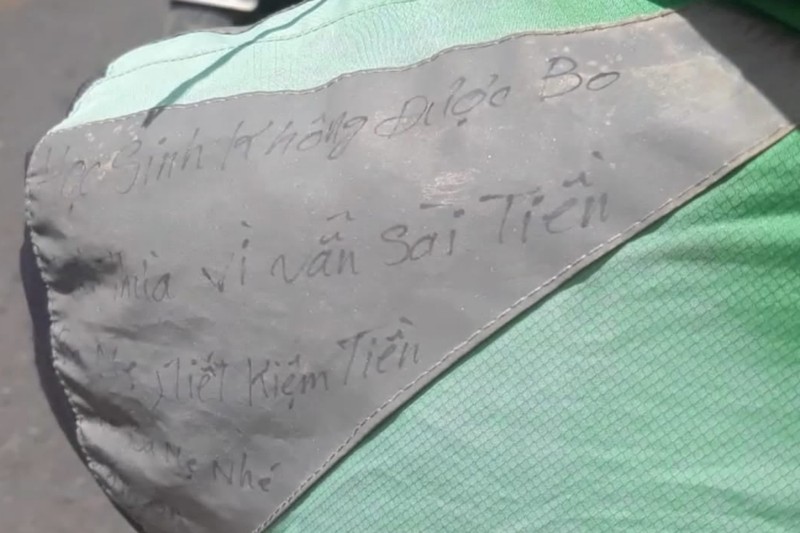 Học Sinh Không Được Bo
vì vẫn sài Tiền
Tiết Kiệm Tiền
Nhé